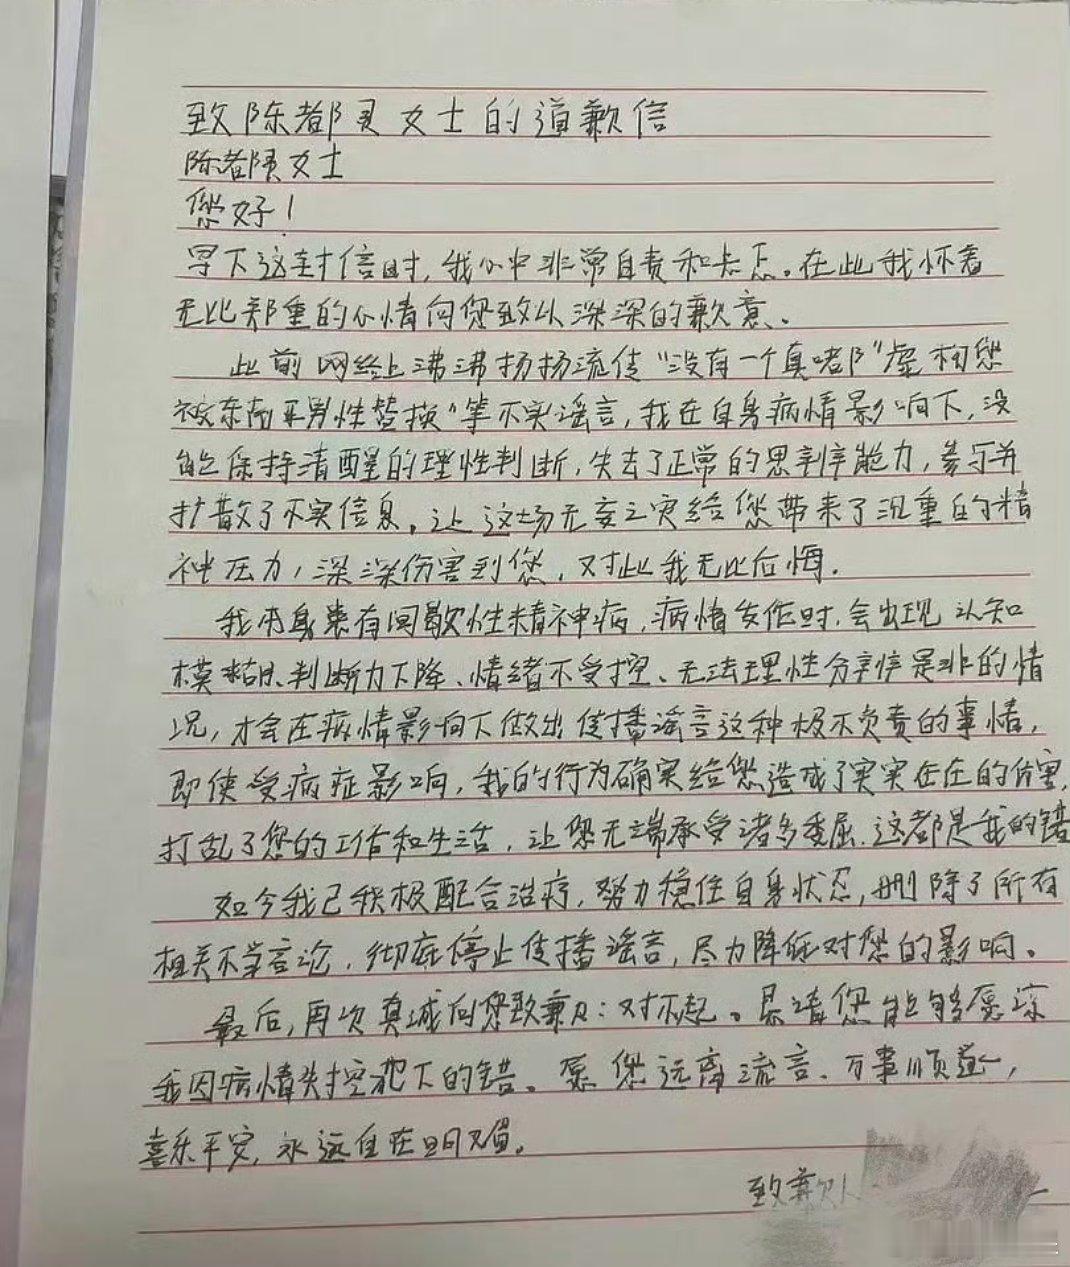 致陈都灵女士的道歉信
陈都灵女士
您好！
写下这封信时，我心中非常自责和忐忑。在此我怀着
无比郑重的心情向您致以深深的歉意、
此前网络上沸沸扬扬流传"没有一个真啫阝"虚构您
被东南亚男性替换"等不实谣言，我在自身病情影响下，没
能保持清醒的理性判断，失去了正常的思辨能力，参与并
扩散了不实信息。让这场无妄之灾给您带来了沉重的精
神压力，深深伤害到您，对此我无比后悔.
我本身患有间歇性精神病，病情发作时，会出现认知
模糊、判断力下降、情绪不受控、无法理性分辨是非的情
况，才会在病情影响下做出传播谣言这种极不负责的事情，
即使受病症影响，我的行为确实给您造成了实实在在的伤害，
打乱了您的工作和生活，让您无端承受诸多委屈.这都是我的错
如今我已积极配合治疗，努力稳住自身状态，删除了所有
相关不当言论，彻底停止传播谣言，尽力降低对您的影响。
最后，再次真诚向您致歉：对不起。恳请您能够原谅
我因病情失控犯下的错。愿您远离流言、万事顺遂，
喜乐平安，永远自在明媚。
致歉人